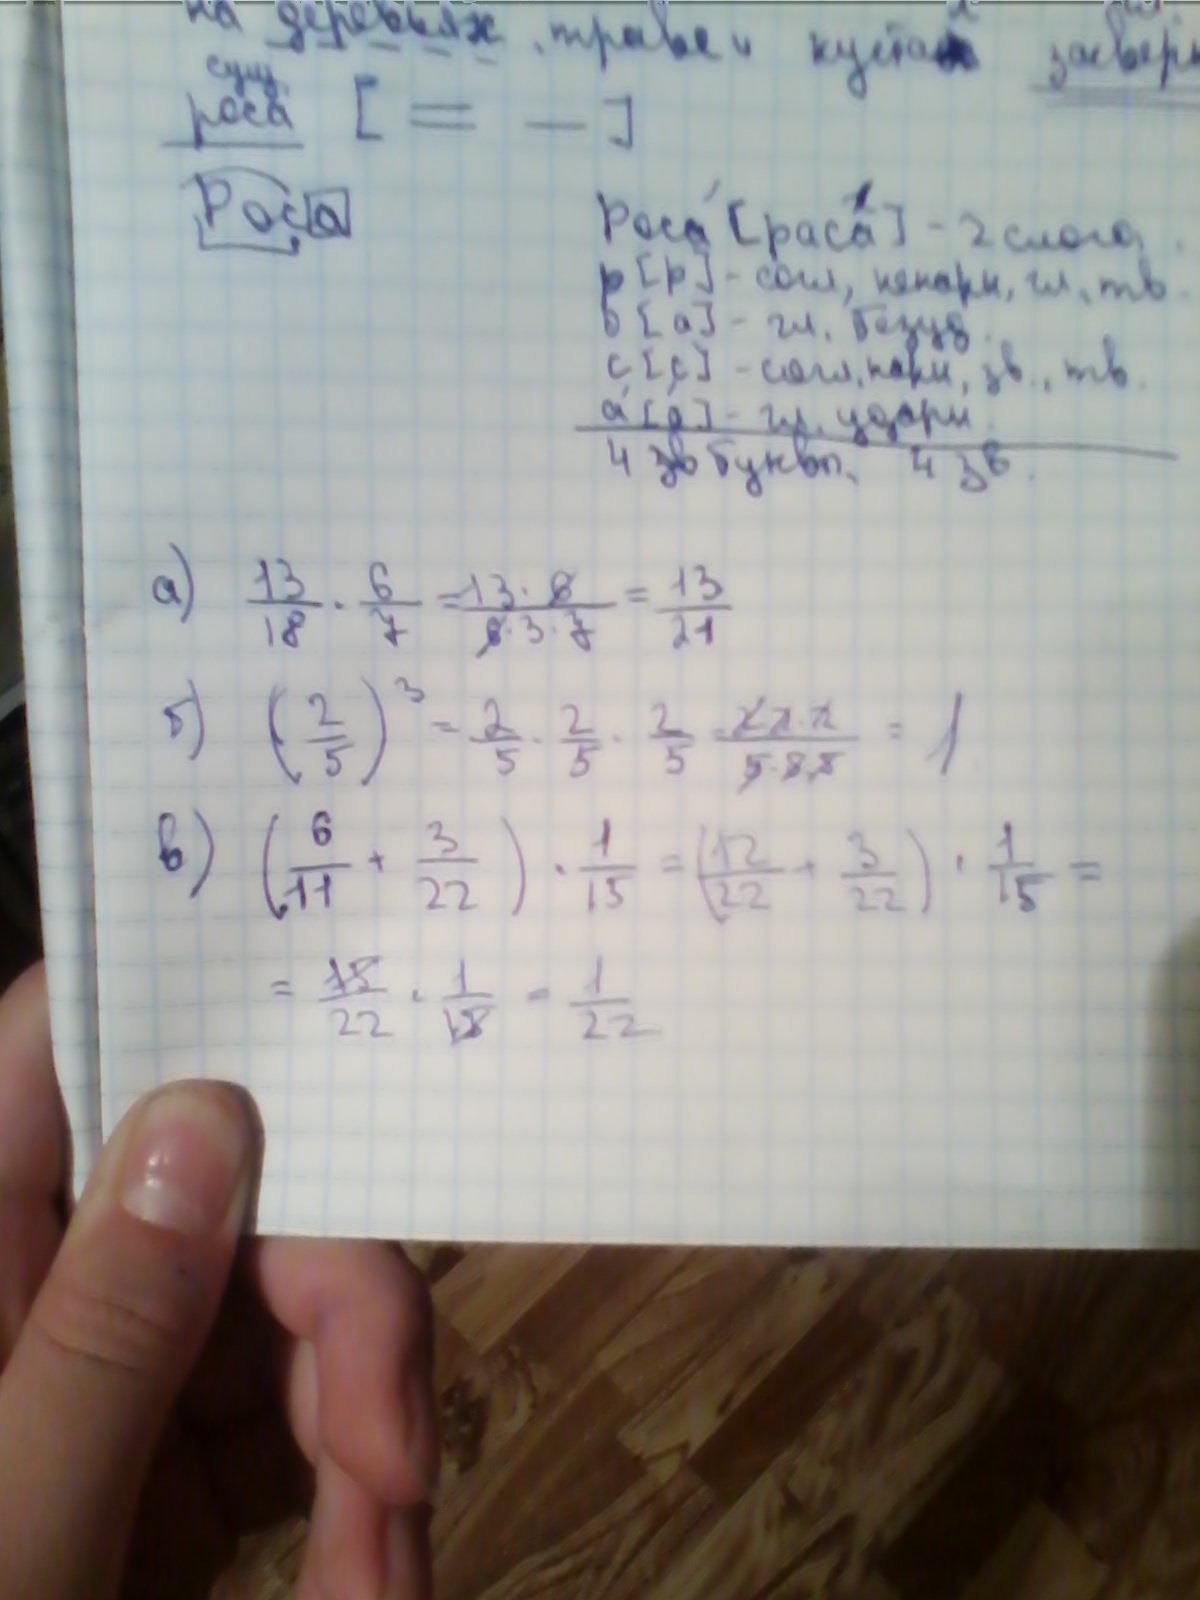 на деревьях, траве и кустах засверк
сущ.
роса [ = — ]
Роса
Роса́ [раса́] - 2 слога.
р [р] - согл, непарн, зв, тв.
о [а] - гл. безуд.
с [с] - согл, парн, зв., тв.
а́ [а́] - гл. ударн.
4 зв буквы, 4 зв.
а) 13/18 · 6/7 = 13·6/6·3·7 = 13/21
б) (2/5)³ = 2/5 · 2/5 · 2/5 = 2·2·2/5·5·5 = 1
в) (6/11 + 3/22) · 1/15 = (12/22 + 3/22) · 1/15 =
= 15/22 · 1/15 = 1/22